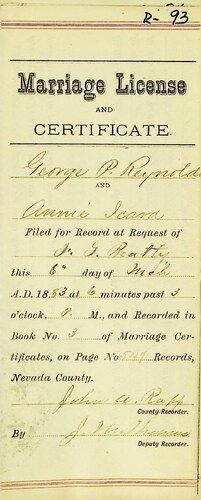 R- 93
Marriage License
AND
CERTIFICATE.
George P. Reynolds
AND
Annie Icard
Filed for Record at Request of
this 6" day of Mch
A.D. 1883 at 6 minutes past 3
o'clock, P. M., and Recorded in
Book No. 3 of Marriage Cer-
tificates, on Page No Records,
Nevada County.
John A. Rapp
County Recorder.
By
Deputy Recorder.